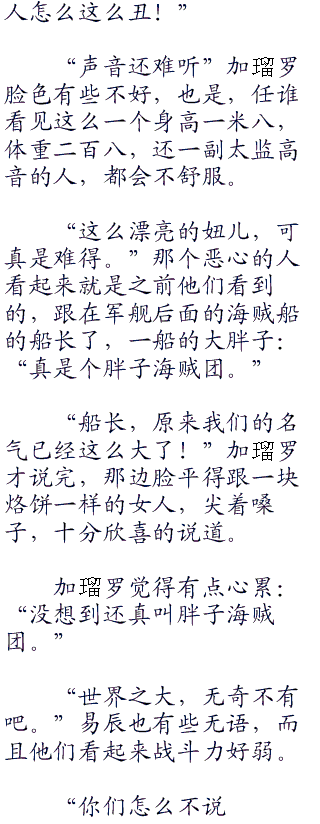 人怎么这么丑！”
“声音还难听”加瑠罗
脸色有些不好，也是，任谁
看见这么一个身高一米八，
体重二百八，还一副太监高
音的人，都会不舒服。
“这么漂亮的妞儿，可
真是难得。”那个恶心的人
看起来就是之前他们看到
的，跟在军舰后面的海贼船
的船长了，一船的大胖子：
“真是个胖子海贼团。”
“船长，原来我们的名
气已经这么大了！”加瑠罗
才说完，那边脸平得跟一块
烙饼一样的女人，尖着嗓
子，十分欣喜的说道。
加瑠罗觉得有点心累：
“没想到还真叫胖子海贼
团。”
“世界之大，无奇不有
吧。”易辰也有些无语，而
且他们看起来战斗力好弱。
“你们怎么不说